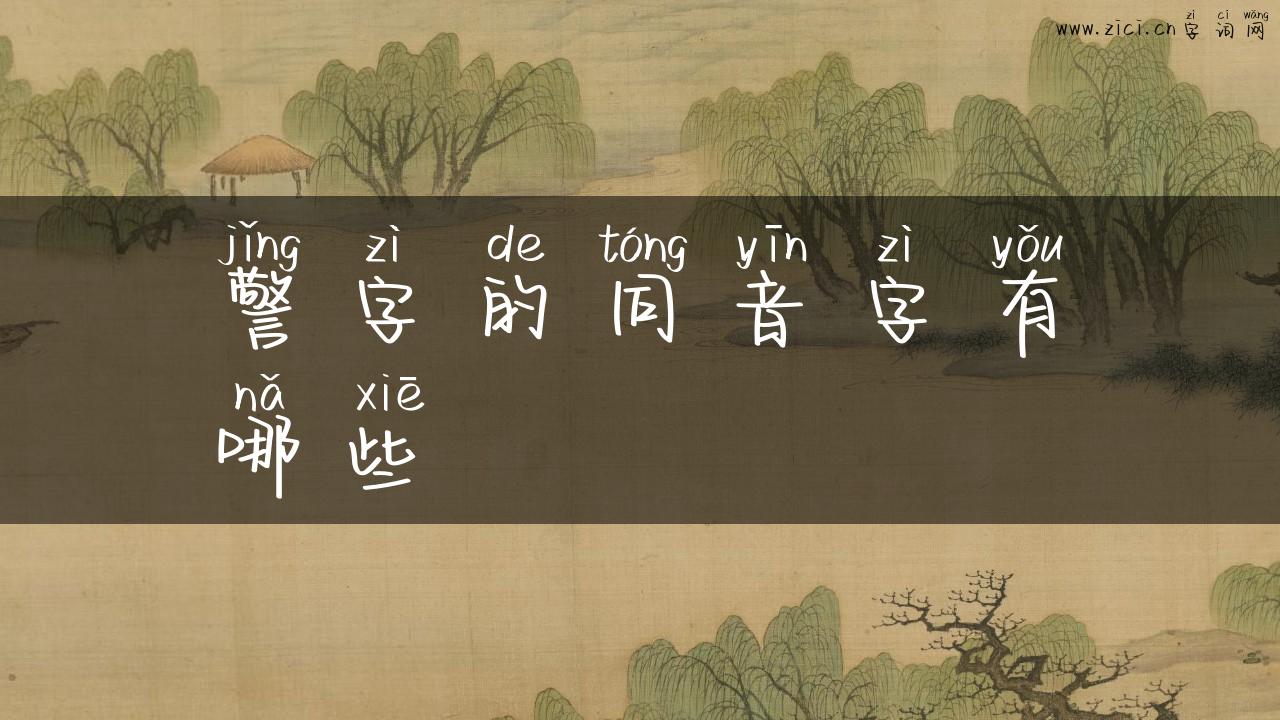 zì cí wǎng
www.zici.cn 字词网
jǐng zì de tóng yīn zì yǒu
警字的同音字有
nǎ xiē
哪些